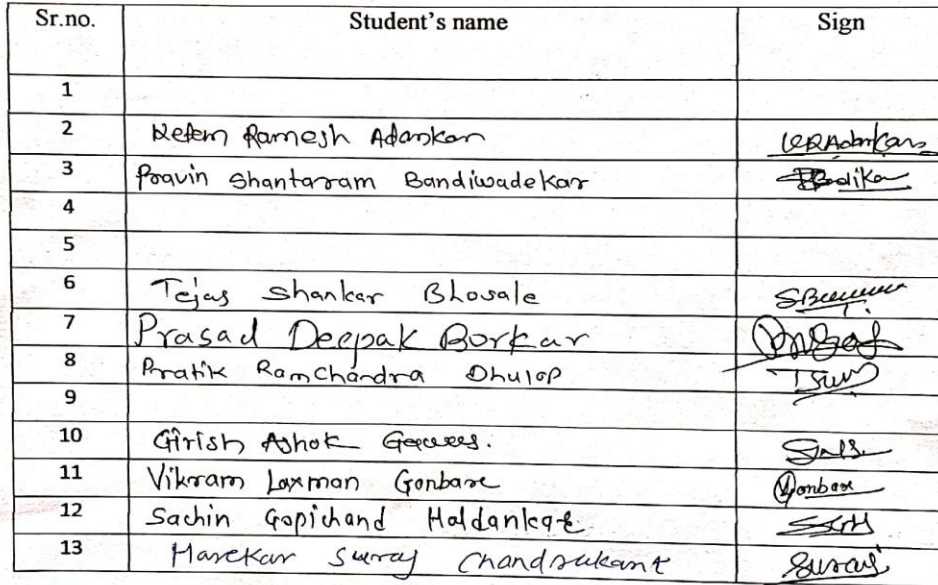 Sr.no. Student's name Sign
1
2 Ramesh Adarkar
3 Pravin Shantaram Bandiwadekar
4
5
6 Tejas Shankar Bhosale
7 Prasad Deepak Borkar
8 Pratik Ramchandra Dhulap
9
10 Girish Ashok
11 Vikram Laxman Gonbare Gonbare
12 Sachin Gopichand Haldankar
13 Harekar Suraj Chandrakant Suraj